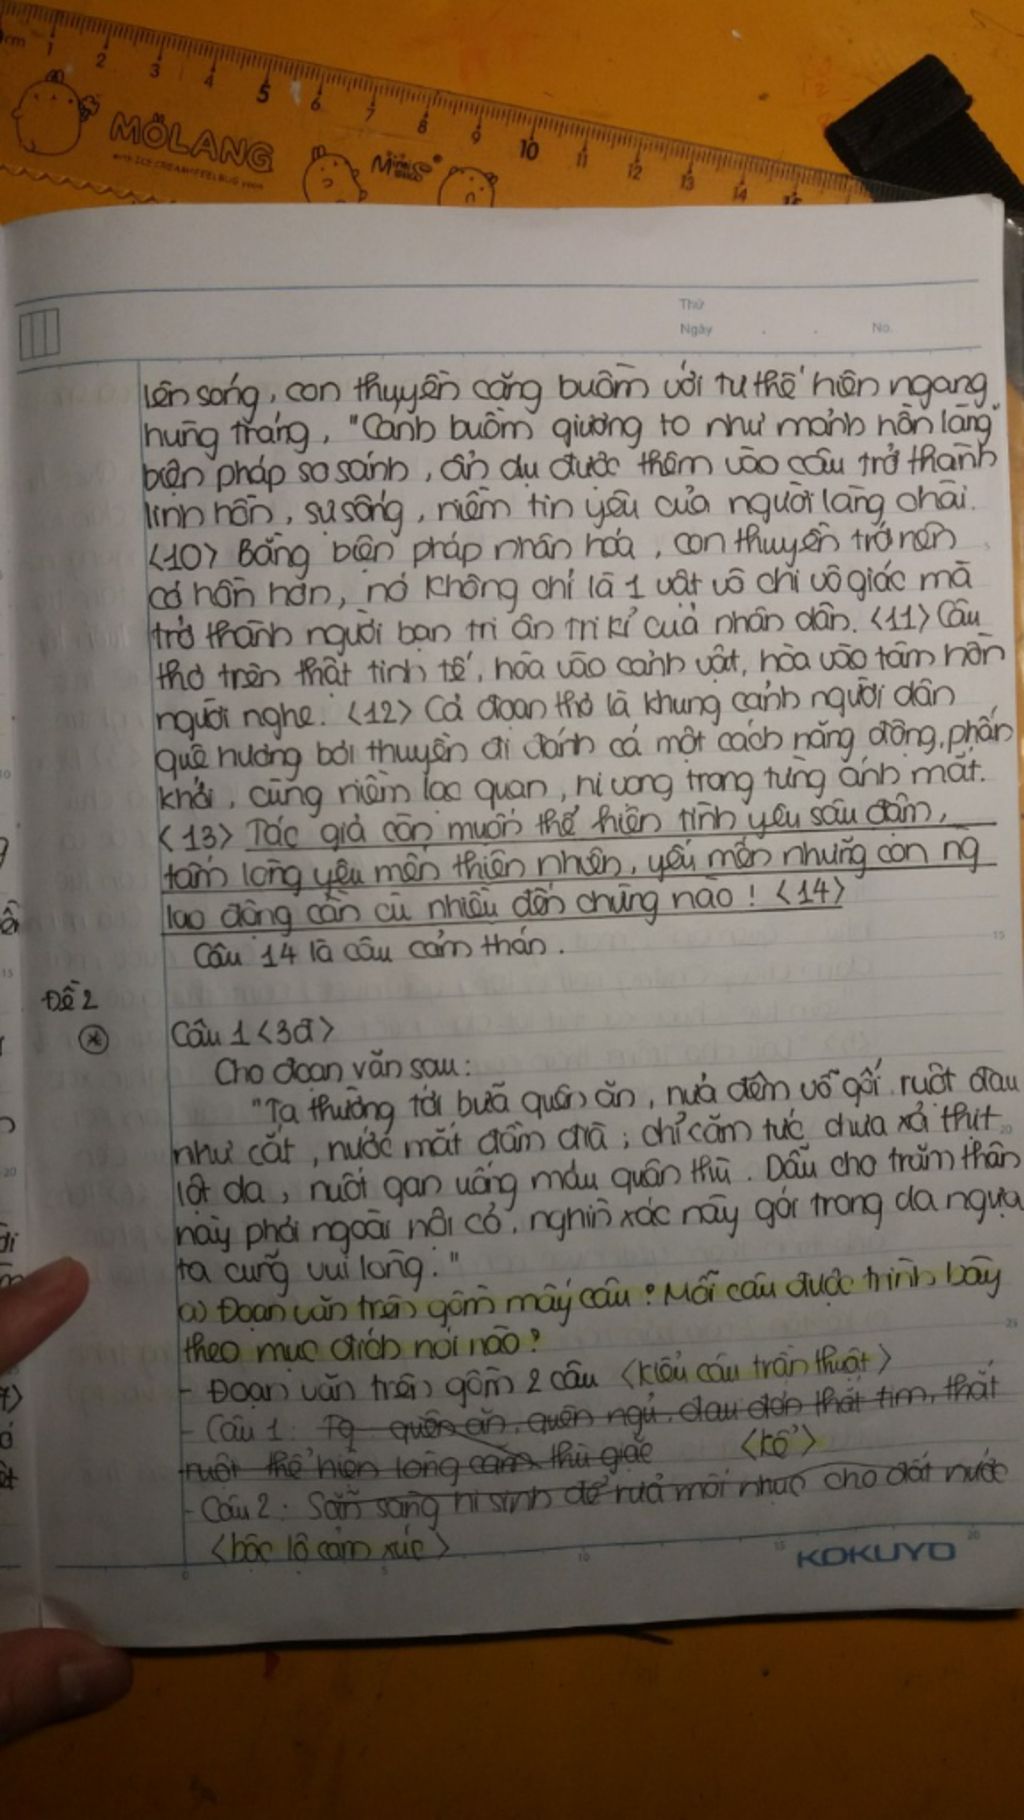 cm 1 2 3 4 5 6 7 8 9 10 11 12 13 14 15
MOLANG
Thứ
Ngày . . No.
lên sóng, con thuyền căng buồm với tư thế hiên ngang
hùng tráng, "Cánh buồm giương to như mảnh hồn làng"
biện pháp so sánh, ẩn dụ được thêm vào câu trở thành
linh hồn, sự sống, niềm tin yêu của người làng chài.
<10> Bằng biện pháp nhân hóa, con thuyền trở nên
có hồn hơn, nó không chỉ là 1 vật vô chi vô giác mà
trở thành người bạn tri ân tri kỉ của nhân dân. <11> Câu
thơ trên thật tinh tế, hòa vào cảnh vật, hòa vào tâm hồn
người nghe. <12> Cả đoạn thơ là khung cảnh người dân
quê hương bơi thuyền đi đánh cá một cách năng động, phấn
khởi, cùng niềm lạc quan, hi vọng trong từng ánh mắt.
<13> Tác giả còn muốn thể hiện tình yêu sâu đậm,
tấm lòng yêu mến thiên nhiên, yêu mến những con ng
lao động cần cù nhiều đến chừng nào! <14>
Câu 14 là câu cảm thán.
Đề 2
Câu 1 <3đ>
Cho đoạn văn sau:
"Ta thường tới bữa quên ăn, nửa đêm vỗ gối, ruột đau
như cắt, nước mắt đầm đìa; chỉ căm tức chưa xả thịt
lột da, nuốt gan uống máu quân thù. Dẫu cho trăm thân
này phơi ngoài nội cỏ, nghìn xác này gói trong da ngựa
ta cũng vui lòng."
a) Đoạn văn trên gồm mấy câu? Mỗi câu được trình bày
theo mục đích nói nào?
- Đoạn văn trên gồm 2 câu <Kiểu câu trần thuật>
- Câu 1: Ta quên ăn, quên ngủ, đau đớn thắt tim, thắt
ruột thể hiện lòng căm thù giặc <kể>
- Câu 2: Sẵn sàng hi sinh để rửa mối nhục cho đất nước
<bộc lộ cảm xúc>
KOKUYO